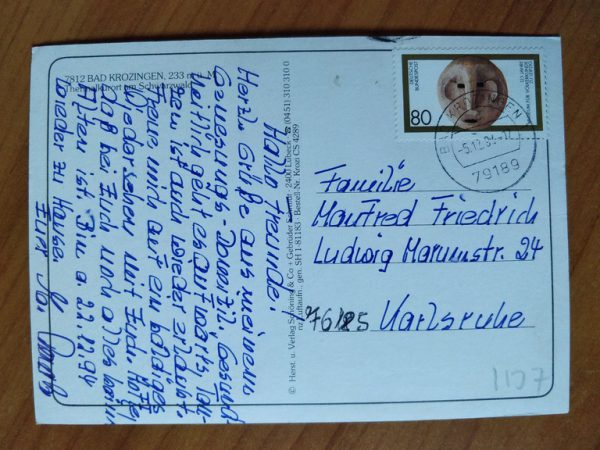 7812 BAD KROZINGEN, 233 m ü. M.
Thermalkurort am Schwarzwald
Hallo Freunde!
Herzl. Grüße aus meinem
Genesungs-Domizil. Gesund-
heitlich geht es aufwärts. Tan-
zen ist auch wieder erlaubt.
Freue mich auf ein baldiges
Wiedersehen mit Euch. Hoffe,
daß bei Euch noch alles beim
Alten ist. Bin a. 22.12.94
wieder zu Hause.
Euer
© Herst. u. Verlag Schöning & Co + Gebrüder Schmidt · 2400 Lübeck · ☎ (0451) 310 310 0
Luftaufn.: gen. SH 1-81183 · Bestell-Nr. Krozi CS 4289
DEUTSCHE
BUNDESPOST
80
BAD KROZINGEN
-5.12.94-17
79189
Familie
Manfred Friedrich
Ludwig Marumstr. 24
76185 Karlsruhe
1107